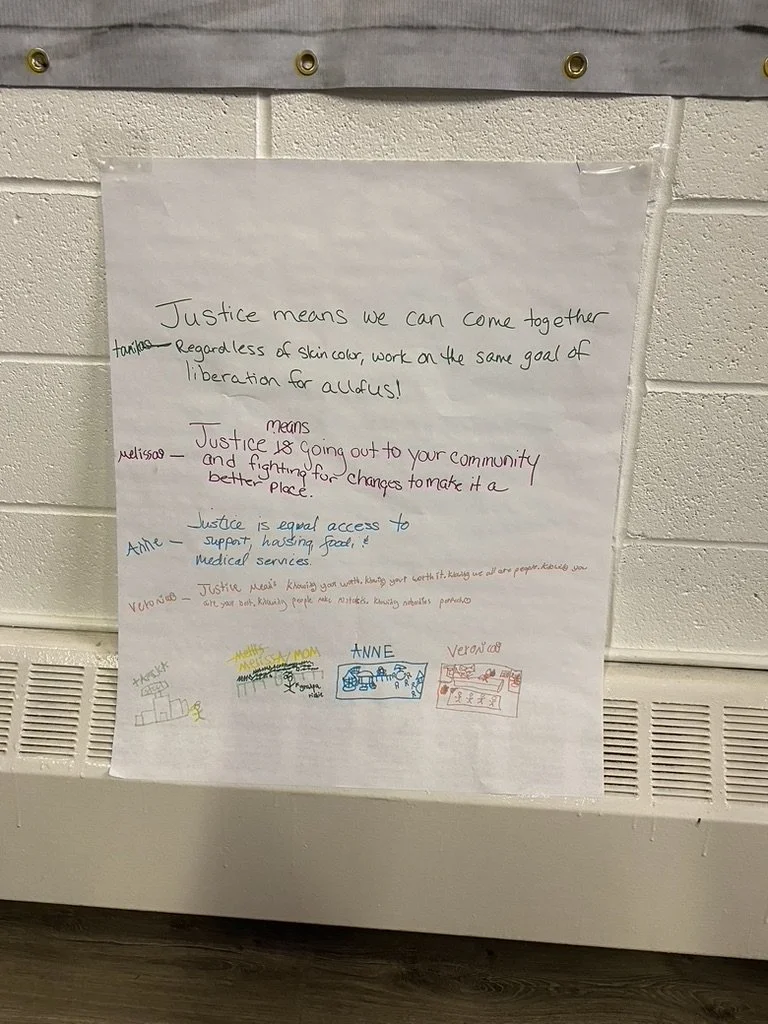 Justice means we can come together
tanikas— Regardless of skin color, work on the same goal of
liberation for all of us!
means
Melissas — Justice is going out to your community
and fighting for changes to make it a
better place.
Anne — Justice is equal access to
support, housing, food, &
medical services.
Veronicas — Justice means knowing your worth. knowing your worth it. knowing we all are people. knowing you
are your best, knowing people make mistakes. knowing nobodies perfect
TANIKA
Melissa/MOM
ANNE
Veronicas
grandpa